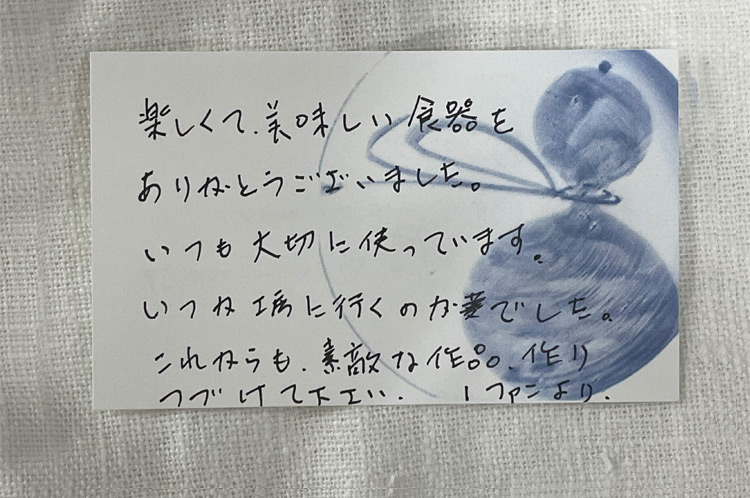 楽しくて、美味しい食器を
ありがとうございました。
いつも大切に使っています。
いつか工房に行くのが夢でした。
これからも、素敵な作品、作り
つづけて下さい。 1ファンより.